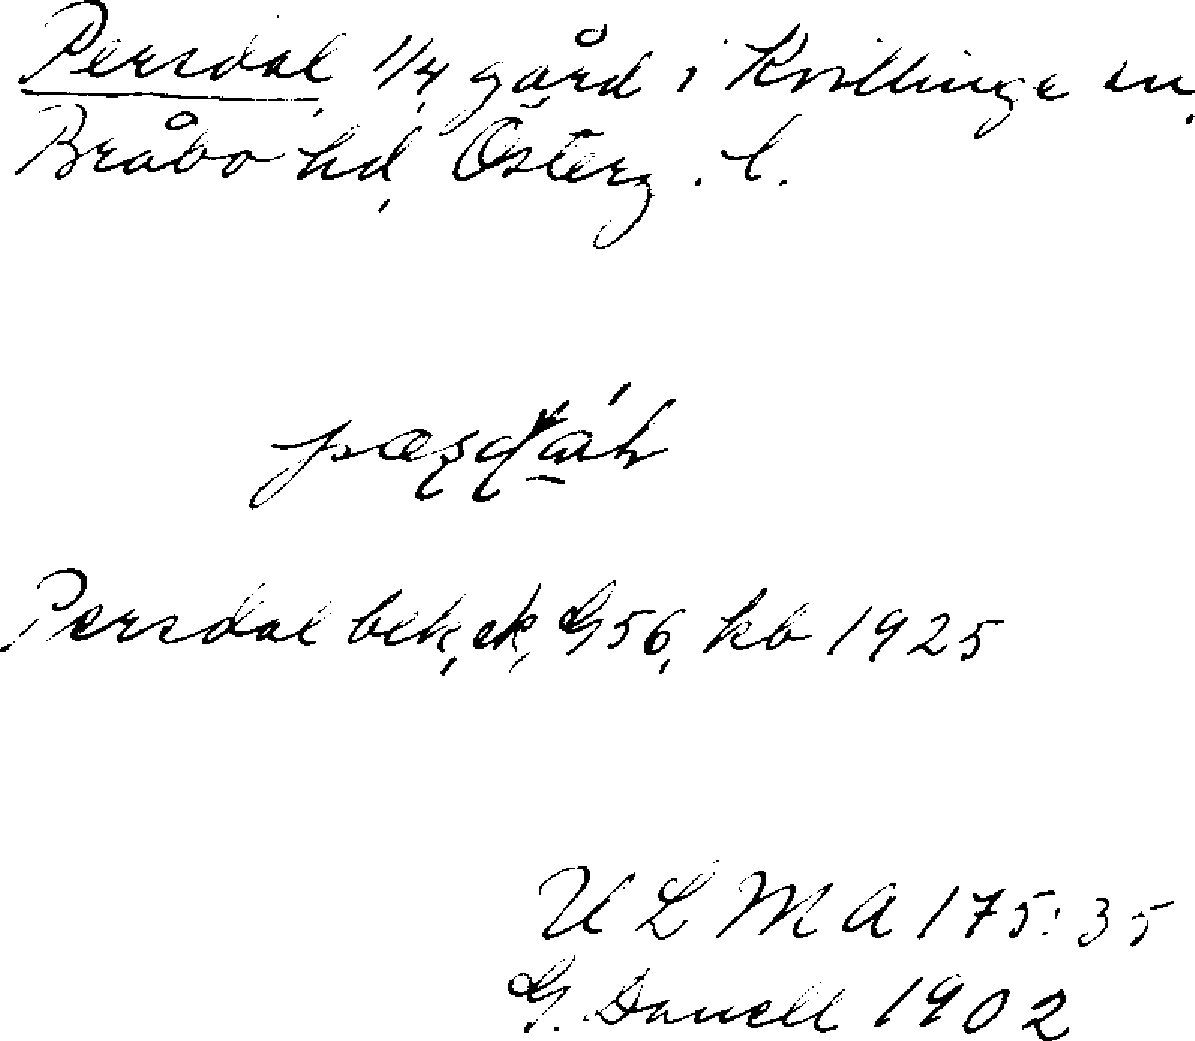 Persdal, 1/4, gård i Kvillinge sn,
Bråbo hd, Österg. l.
Persdal bek, ek, G56, kb 1925
U L M A 175:35
G. Danell 1902